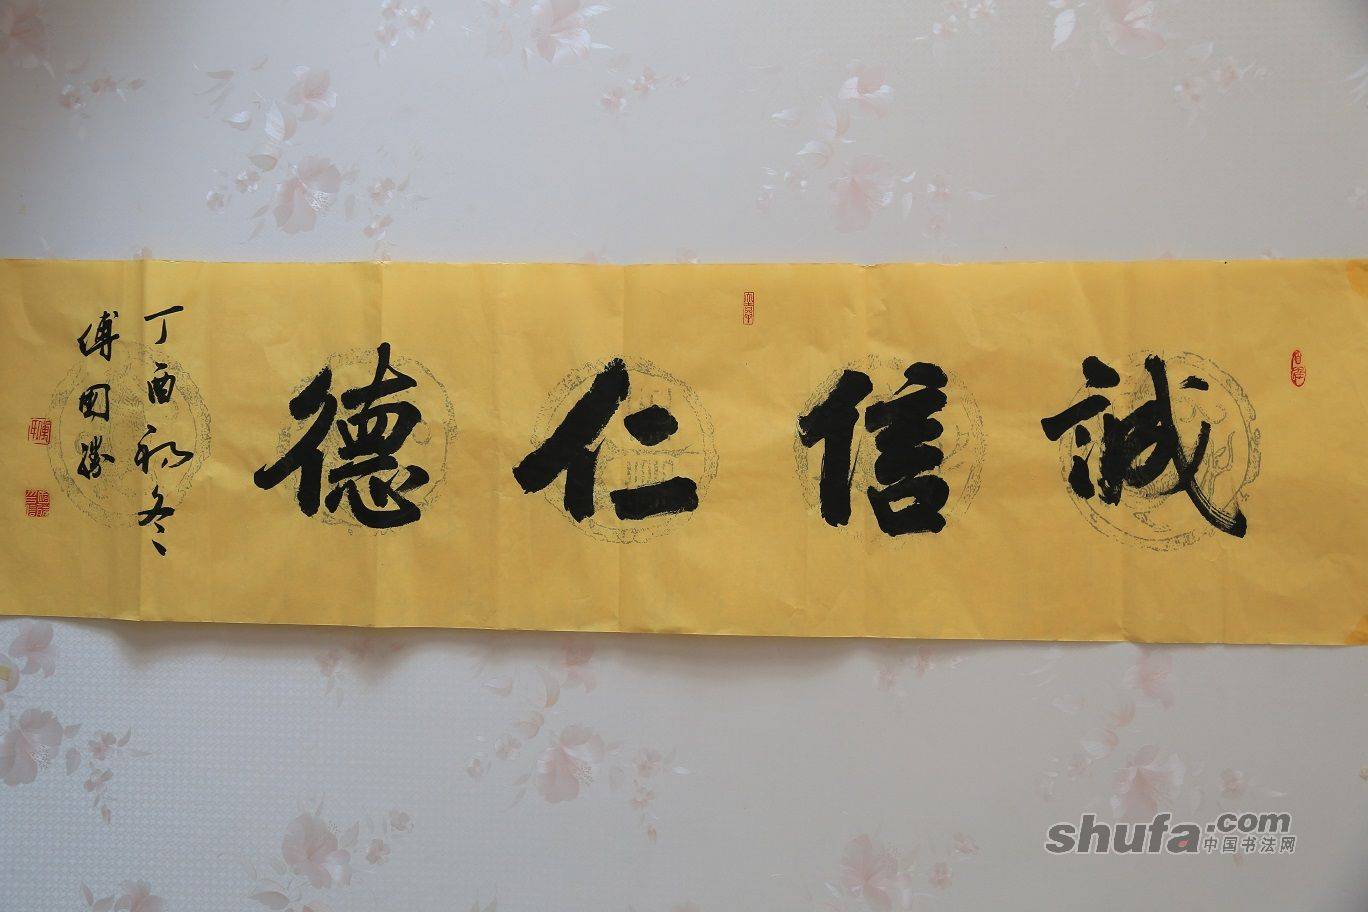 誠信仁德
丁酉初冬
傅國勝
shufa.com
中国书法网